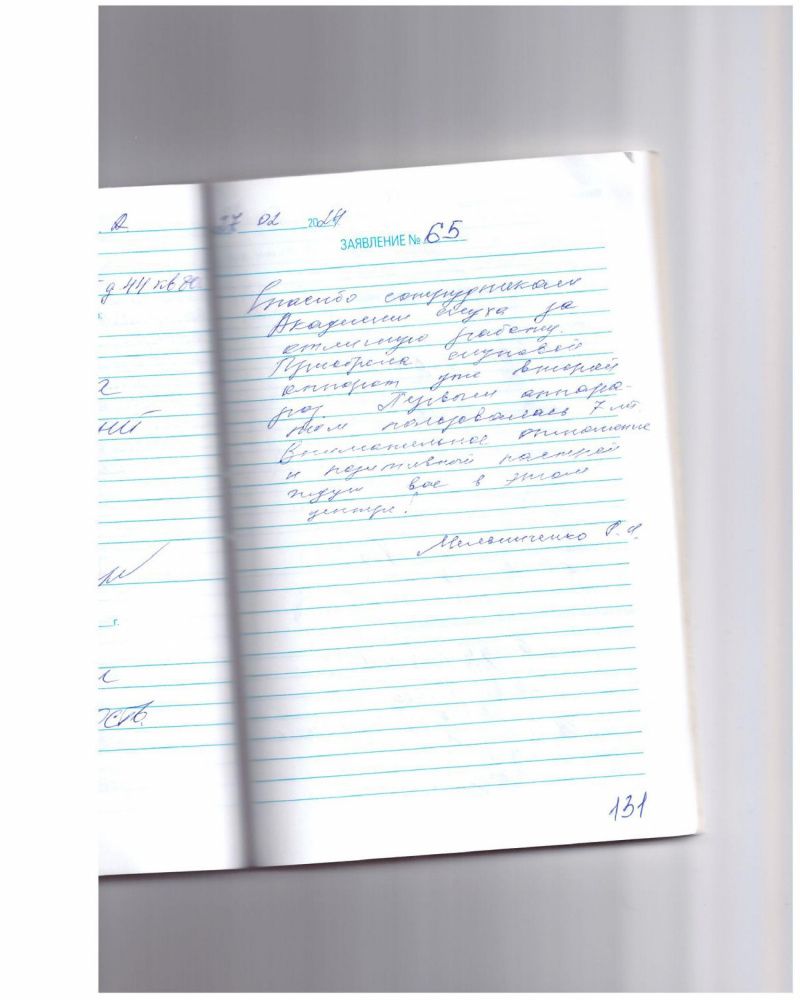 д
д 44 кв 80
ний
г.
27 02 2024
ЗАЯВЛЕНИЕ № 65
Спасибо сотрудникам
Академии слуха за
отличную работу.
Приобрела слуховой
аппарат уже второй
раз. Первым аппара-
том пользовалась 7 лет.
Внимательное отношение
и позитивный настрой
ждут вас в этом
центре!
Мельниченко Г.Ф.
131